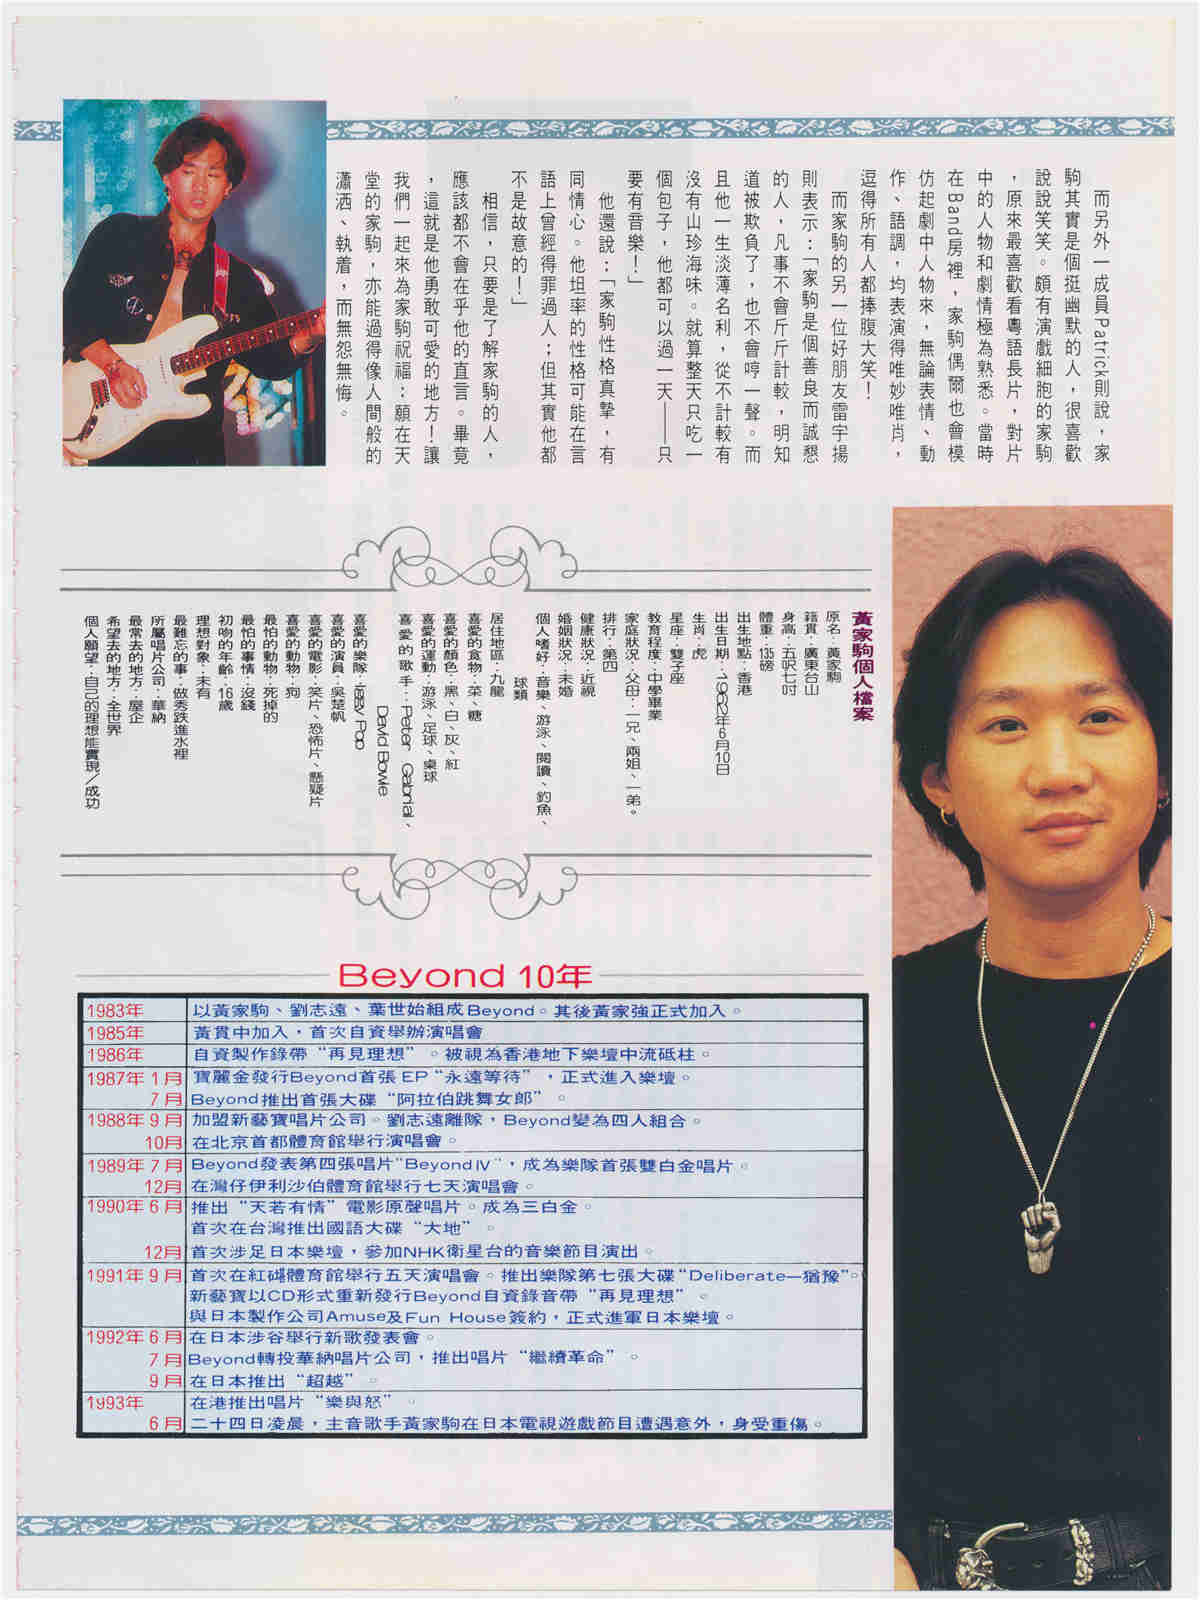 而另外一成員Patrick則說，家
駒其實是個挺幽默的人，很喜歡
說說笑笑。頗有演戲細胞的家駒
，原來最喜歡看粵語長片，對片
中的人物和劇情極為熟悉。當時
在Band房裡，家駒偶爾也會模
仿起劇中人物來，無論表情、動
作、語調，均表演得唯妙唯肖，
逗得所有人都捧腹大笑！
而家駒的另一位好朋友雷宇揚
則表示：「家駒是個善良而誠懇
的人，凡事不會斤斤計較，明知
道被欺負了，也不會哼一聲。而
且他一生淡薄名利，從不計較有
沒有山珍海味。就算整天只吃一
個包子，他都可以過一天——只
要有音樂！」
他還說：「家駒性格真摯，有
同情心。他坦率的性格可能在言
語上曾經得罪過人；但其實他都
不是故意的！」
相信，只要是了解家駒的人，
應該都不會在乎他的直言。畢竟
，這就是他勇敢可愛的地方！讓
我們一起來為家駒祝福：願在天
堂的家駒，亦能過得像人間般的
瀟洒、執着，而無怨無悔。
黃家駒個人檔案
原名：黃家駒
籍貫：廣東台山
身高：五呎七吋
體重：135磅
出生地點：香港
出生日期：1962年6月10日
生肖：虎
星座：雙子座
教育程度：中學畢業
家庭狀況：父母：一兄、兩姐、一弟。
排行：第四
健康狀況：近視
婚姻狀況：未婚
個人嗜好：音樂、游泳、閱讀、釣魚、
球類
居住地區：九龍
喜愛的食物：菜、糖
喜愛的顏色：黑、白、灰、紅
喜愛的運動：游泳、足球、桌球
喜愛的歌手：Pieter Gabrial、
David Bowie
喜愛的樂隊：
喜愛的演員：吳楚帆
喜愛的電影：笑片、恐怖片、懸疑片
喜愛的動物：狗
最怕的動物：死掉的
最怕的事情：沒錢
初吻的年齡：16歲
理想對象：未有
最難忘的事：做秀跌進水裡
所屬唱片公司：華納
最常去的地方：屋企
希望去的地方：全世界
個人願望：自己的理想能實現／成功
Beyond 10年
1983年 以黃家駒、劉志遠、葉世始組成Beyond。其後黃家強正式加入。
1985年 黃貫中加入，首次自資舉辦演唱會
1986年 自資製作錄帶“再見理想”。被視為香港地下樂壇中流砥柱。
1987年 1月 寶麗金發行Beyond首張EP“永遠等待”，正式進入樂壇。
7月 Beyond推出首張大碟“阿拉伯跳舞女郎”。
1988年 9月 加盟新藝寶唱片公司。劉志遠離隊，Beyond變為四人組合。
10月 在北京首都體育館舉行演唱會。
1989年 7月 Beyond發表第四張唱片"BeyondⅣ"，成為樂隊首張雙白金唱片。
12月 在灣仔伊利沙伯體育館舉行七天演唱會。
1990年 6月 推出“天若有情”電影原聲唱片。成為三白金。
首次在台灣推出國語大碟“大地”。
12月 首次涉足日本樂壇，參加NHK衛星台的音樂節目演出。
1991年 9月 首次在紅磡體育館舉行五天演唱會。推出樂隊第七張大碟“Deliberate—猶豫”。
新藝寶以CD形式重新發行Beyond自資錄音帶“再見理想”。
與日本製作公司Amuse及Fun House簽約，正式進軍日本樂壇。
1992年 6月 在日本涉谷舉行新歌發表會。
7月 Beyond轉投華納唱片公司，推出唱片“繼續革命”。
9月 在日本推出“超越”。
1993年 在港推出唱片“樂與怒”。
6月 二十四日凌晨，主音歌手黃家駒在日本電視遊戲節目遭遇意外，身受重傷。